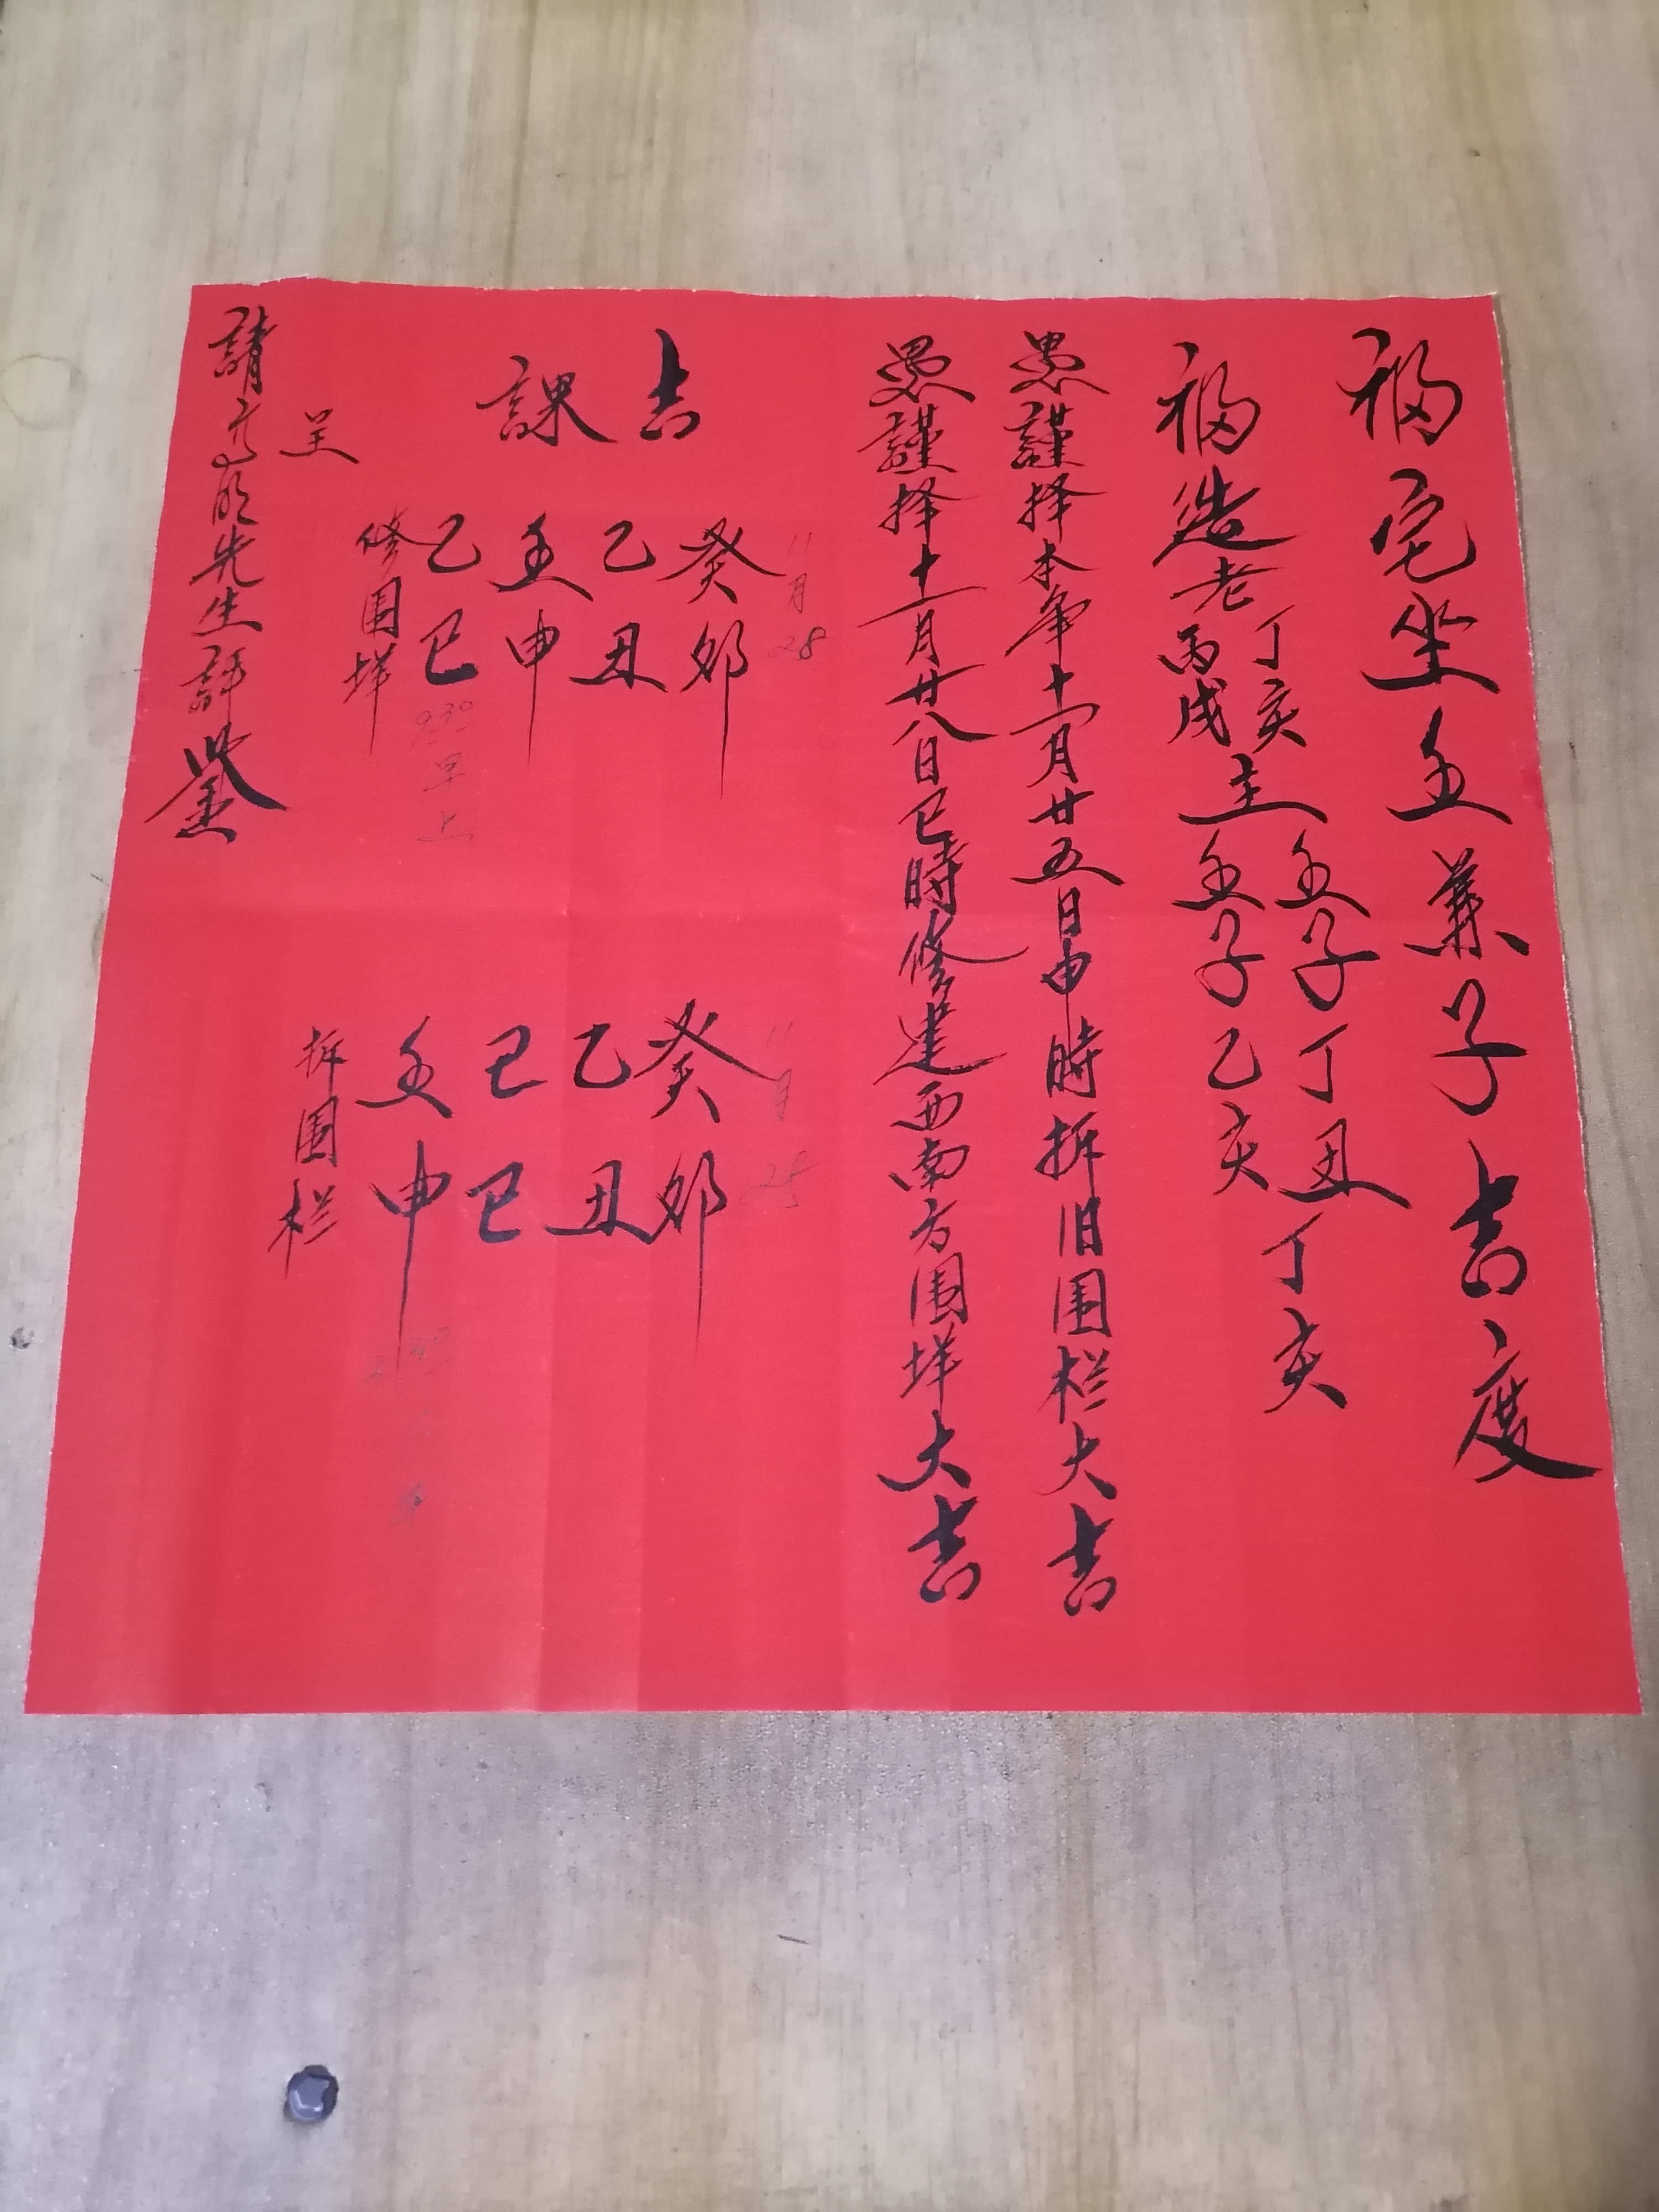 福宅坐壬兼子吉度
福造老丁亥丙戌主壬子壬子丁丑乙亥丁亥
愚謹择本年十一月廿五日申時拆旧围栏大吉
愚謹择十一月廿八日巳時修建西南方围垟大吉
吉課
11月28
癸卯
乙丑
壬申
乙巳
930早上
修围垟
11月25
癸卯
乙丑
己巳
壬申
拆围栏
呈
請高明先生評鉴